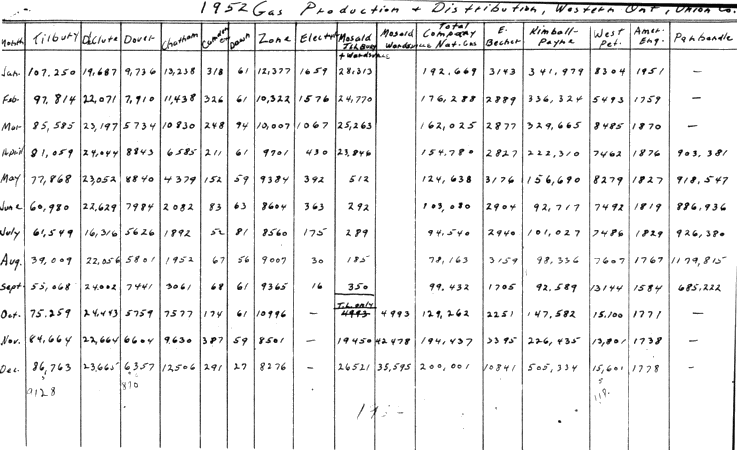 1952 Gas Production + Distribution, Western Ont, Union Co.
Month Tilbury D'Clute Dover Chatham Camden Dawn Zone Electric Mosald Tilbury + Wardsville Mosald Wardsville Total Company Nat. Gas E. Becher Kimball-Payne West Pet. Amer. Eng. Panhandle
Jan. 107,250 19,687 9,736 13,238 318 61 12,377 1659 28,313 192,669 3143 341,979 8304 1951 —
Feb. 97,814 22,071 7,910 11,438 326 61 10,322 1576 24,770 176,288 2889 336,324 5493 1759 —
Mar 85,585 23,197 5734 10830 248 94 10,007 1067 25,263 162,025 2877 329,665 8485 1870 —
April 81,059 24,044 8843 6585 211 61 9701 430 23,846 154,780 2827 222,310 7462 1876 903,381
May 77,868 23,052 8840 4379 152 59 9384 392 512 124,638 3176 156,690 8279 1827 918,547
June 60,980 22,629 7984 2082 83 63 8604 363 292 103,080 2904 92,717 7492 1819 886,936
July 61,549 16,316 5626 1892 52 81 8560 175 289 94,540 2940 101,027 7486 1829 926,380
Aug. 39,009 22,056 5801 1952 67 56 9007 30 185 78,163 3159 98,336 7607 1767 1179,815
Sept. 55,068 24,002 7441 3061 68 61 9365 16 350 99,432 1705 92,589 13144 1584 685,222
T.L. only
Oct. 75,259 24,493 5759 7577 174 61 10996 — 4993 4993 129,262 2251 147,582 15,100 1771 —
Nov. 84,664 22,664 6604 9,630 387 59 8501 — 19450 42478 194,437 3395 226,435 13,801 1738 —
Dec. 86,763 23,665 6357 12506 291 27 8276 — 26521 35,595 200,001 10841 505,334 15,601 1778 —
9128 870 118.